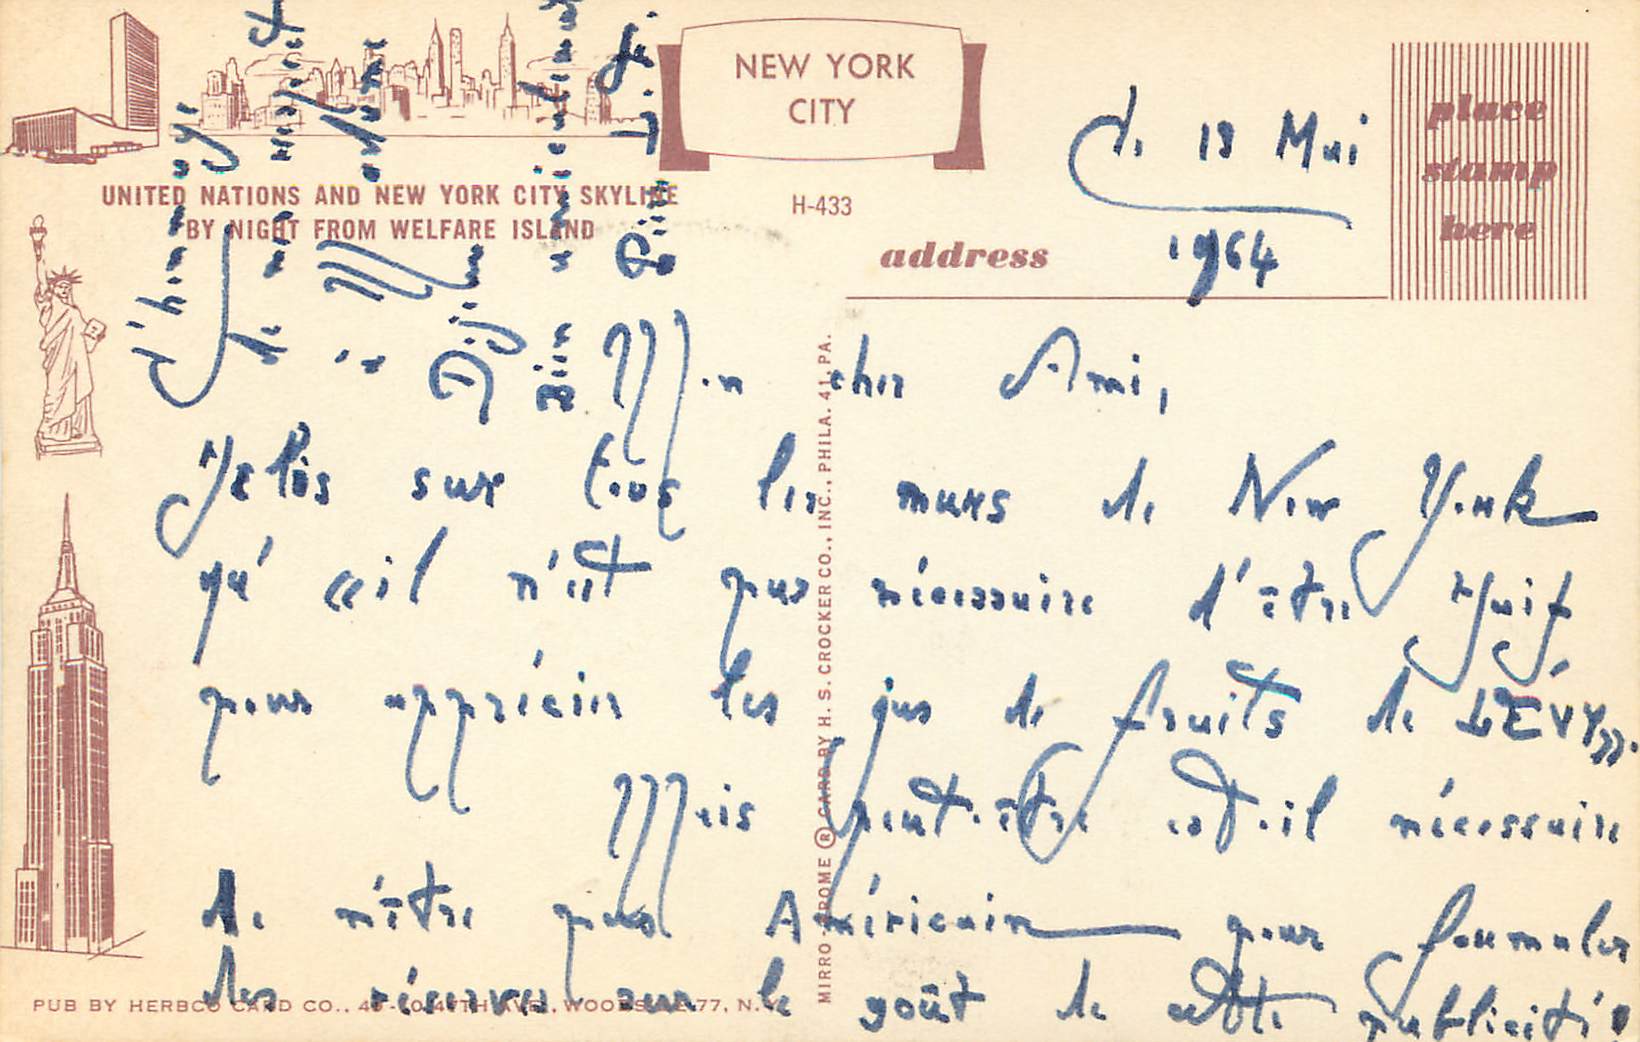 NEW YORK
CITY
place
stamp
here
UNITED NATIONS AND NEW YORK CITY SKYLINE
BY NIGHT FROM WELFARE ISLAND
H-433
address
de 18 Mai
1964
Mon cher Ami,
Je lis sur tous les murs de New York
qu' «il n'est pas nécessaire d'être Juif
pour apprécier les jus de fruits de LÉVY».
Mais peut-être est-il nécessaire
de n'être pas Américain pour formuler
des réserves sur le goût de cette publicité!
d'hommage
de mon respect
à Madame
Dijon
Bien amicalement
MIRRO-CHROME ® CARD BY H. S. CROCKER CO., INC., PHILA. 41, PA.
PUB BY HERBCO CARD CO., 47TH AVE., WOODSIDE 77, N.Y.